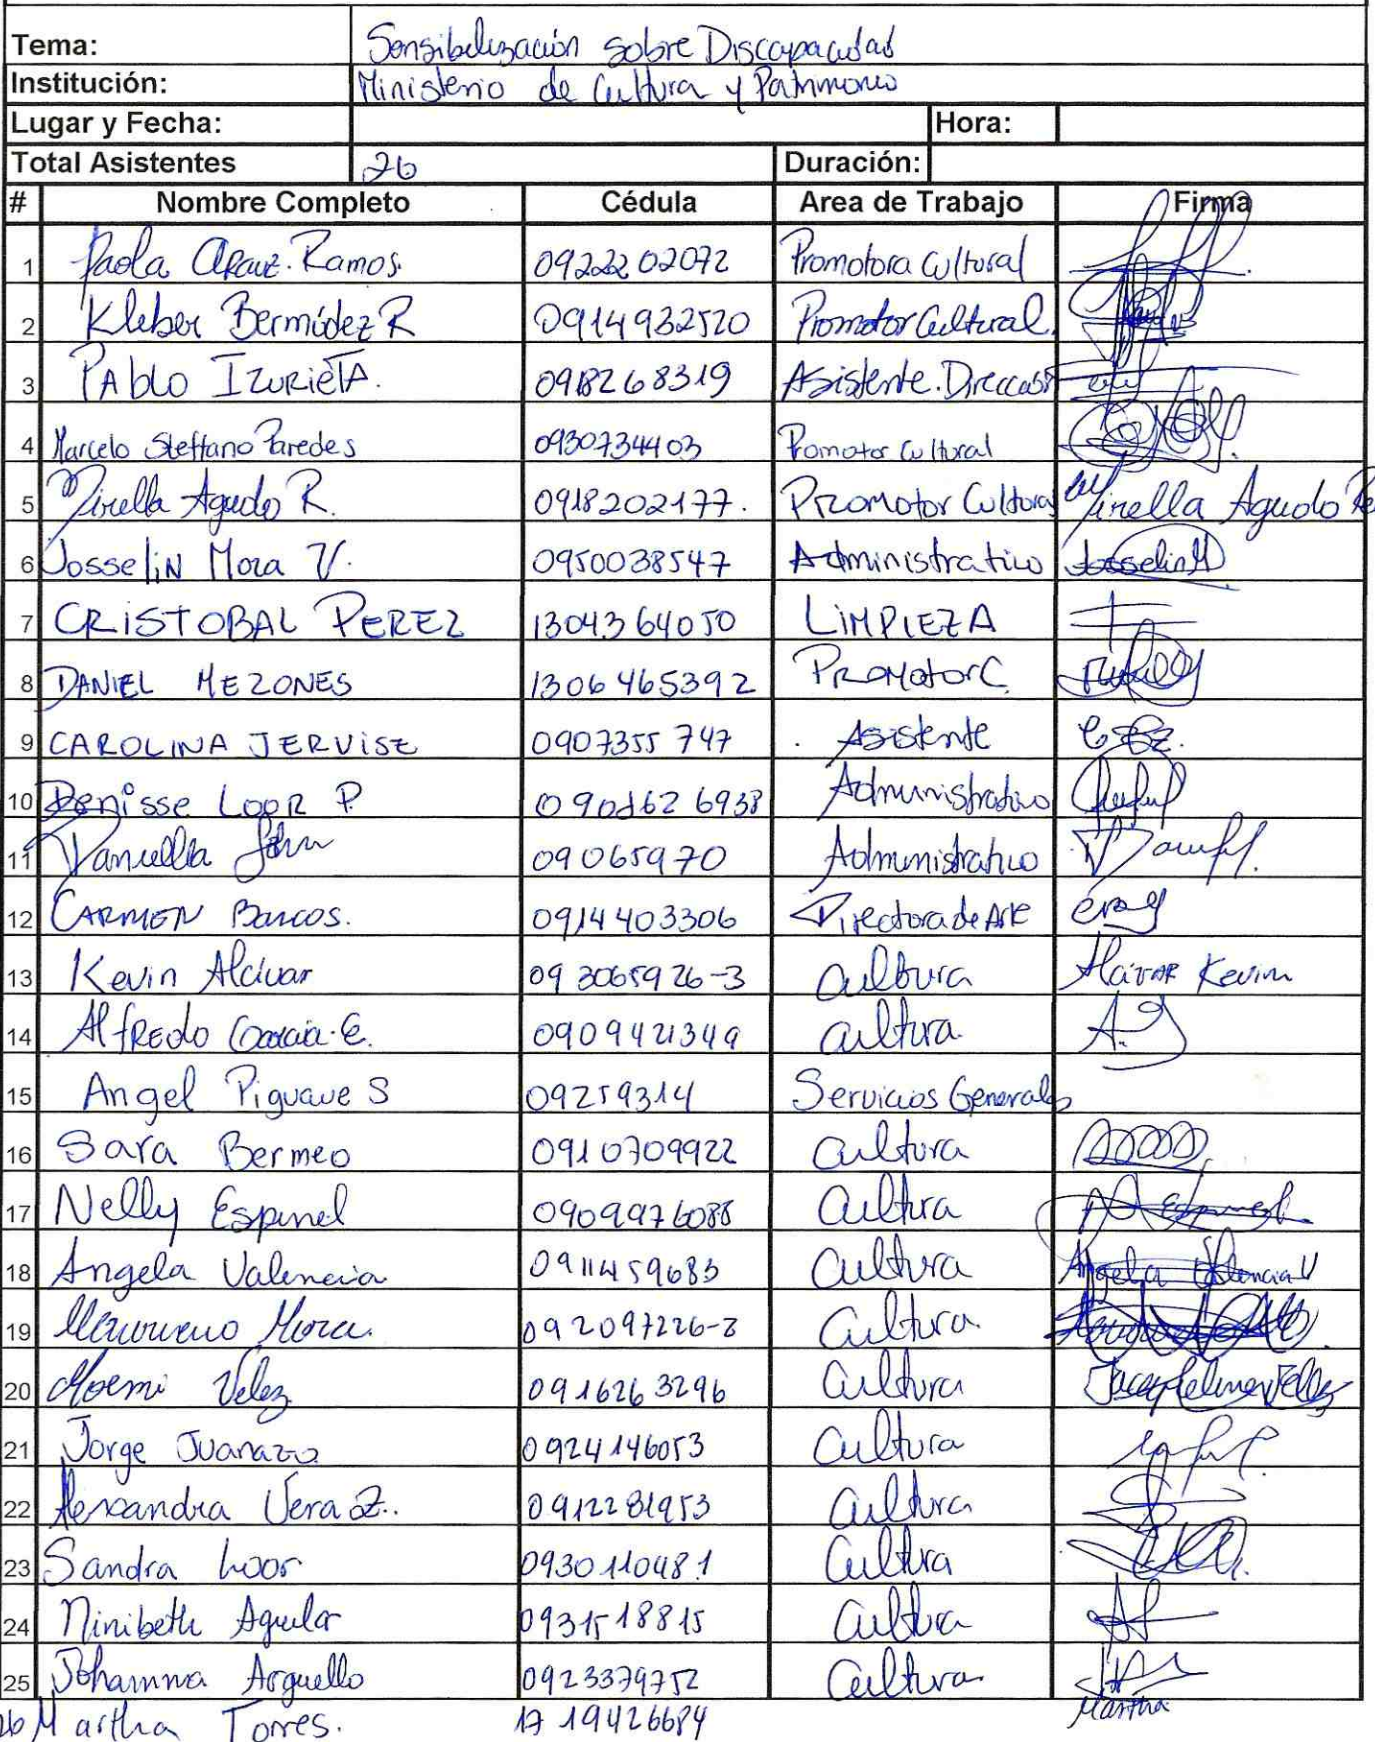 Tema: Sensibilización sobre Discapacidad
Institución: Ministerio de Cultura y Patrimonio
Lugar y Fecha: Hora:
Total Asistentes 26 Duración:
# Nombre Completo Cédula Area de Trabajo Firma
1 Paola Arauz Ramos. 0922202072 Promotora Cultural
2 Kleber Bermúdez R 0914932520 Promotor Cultural
3 PAblo IZURIETA. 0918268319 Asistente.
4 Marcelo Steffano Paredes 0930734403 Promotor Cultural
5 Mirella Agudo R. 0918202177. Promotor Cultural Mirella Agudo
6 Josselin Mora V. 0950038547 Administrativo Josselin M
7 CRISTOBAL PEREZ 1304364050 LIMPIEZA
8 DANIEL MEZONES 1306465392 PROMotor C.
9 CAROLINA JERVISE 0907355747 Asistente
10 Denisse LooR P. Administrativo
11 09065970 Administrativo
12 CARMEN Barcos. 0914403306 Directora de Arte
13 Kevin Alcivar 093065926-3 Cultura Alcivar Kevin
14 AlfREdo Garcia. E. 0909421349 Cultura.
15 Angel Piguave S 09259314 Servicios Generales
16 Sara Bermeo 0910709922 Cultura
17 Nelly Espinel 0909976088 Cultura
18 Angela Valencia 0911459683 Cultura Angela Valencia V
19 Mora. Cultura.
20 Noemi Velez 0916263296 Cultura
21 Jorge Juanazo 0924146053 Cultura
22 Alexandra Vera Z.. 0912281953 Cultura
23 Sandra Loor 0930110481 Cultura
24 Minibeth Aguilar 0931518815 Cultura
25 Johanna Arguello 0923379752 Cultura
26 Martha Torres. 1719426684 Martha